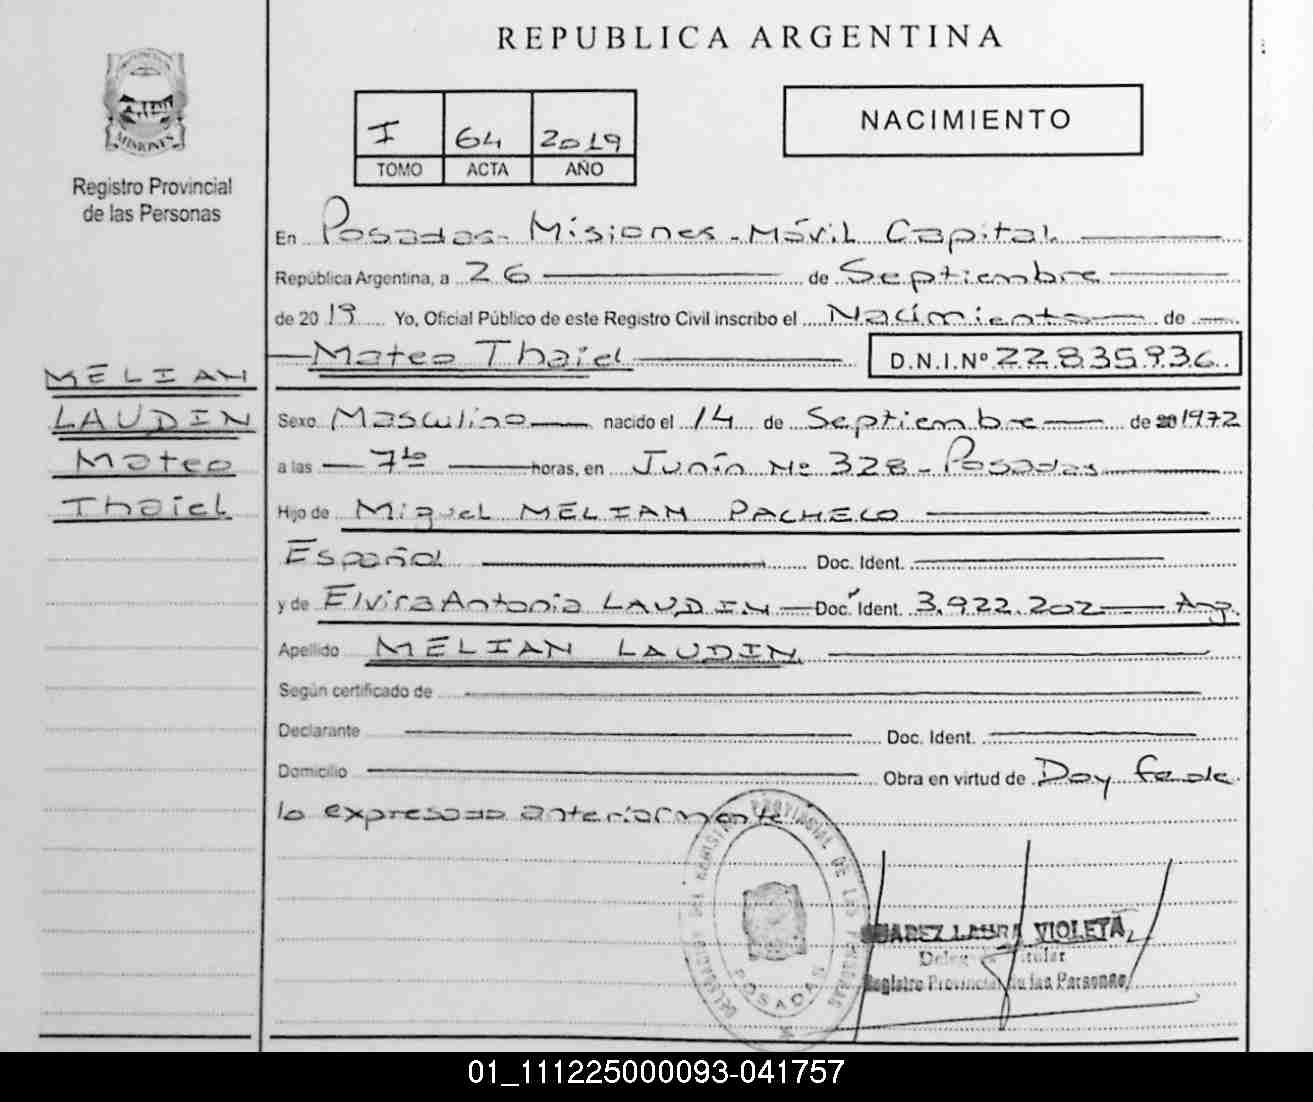 REPUBLICA ARGENTINA
MISIONES
Registro Provincial
de las Personas
I 64 2019
TOMO ACTA AÑO
NACIMIENTO
En Posadas - Misiones - Móvil Capital
República Argentina, a 26 de Septiembre
de 2019 Yo, Oficial Público de este Registro Civil inscribo el Nacimiento de
Mateo Thaiel D.N.I.Nº 22.835.936
MELIAN
LAUDIN
Mateo
Thaiel
Sexo Masculino nacido el 14 de Septiembre de 1972
a las 7 horas, en Junín Nº 328 - Posadas
Hijo de Miguel MELIAN PACHECO
Español Doc. Ident.
y de Elvira Antonia LAUDIN Doc. Ident. 3.922.202 Arg.
Apellido MELIAN LAUDIN
Según certificado de
Declarante Doc. Ident.
Domicilio Obra en virtud de Doy fe de
lo expresado anteriormente
PROVINCIAL DE LAS PERSONAS
POSADAS
LAURA VIOLETA
Registro Provincial de las Personas
01_111225000093-041757